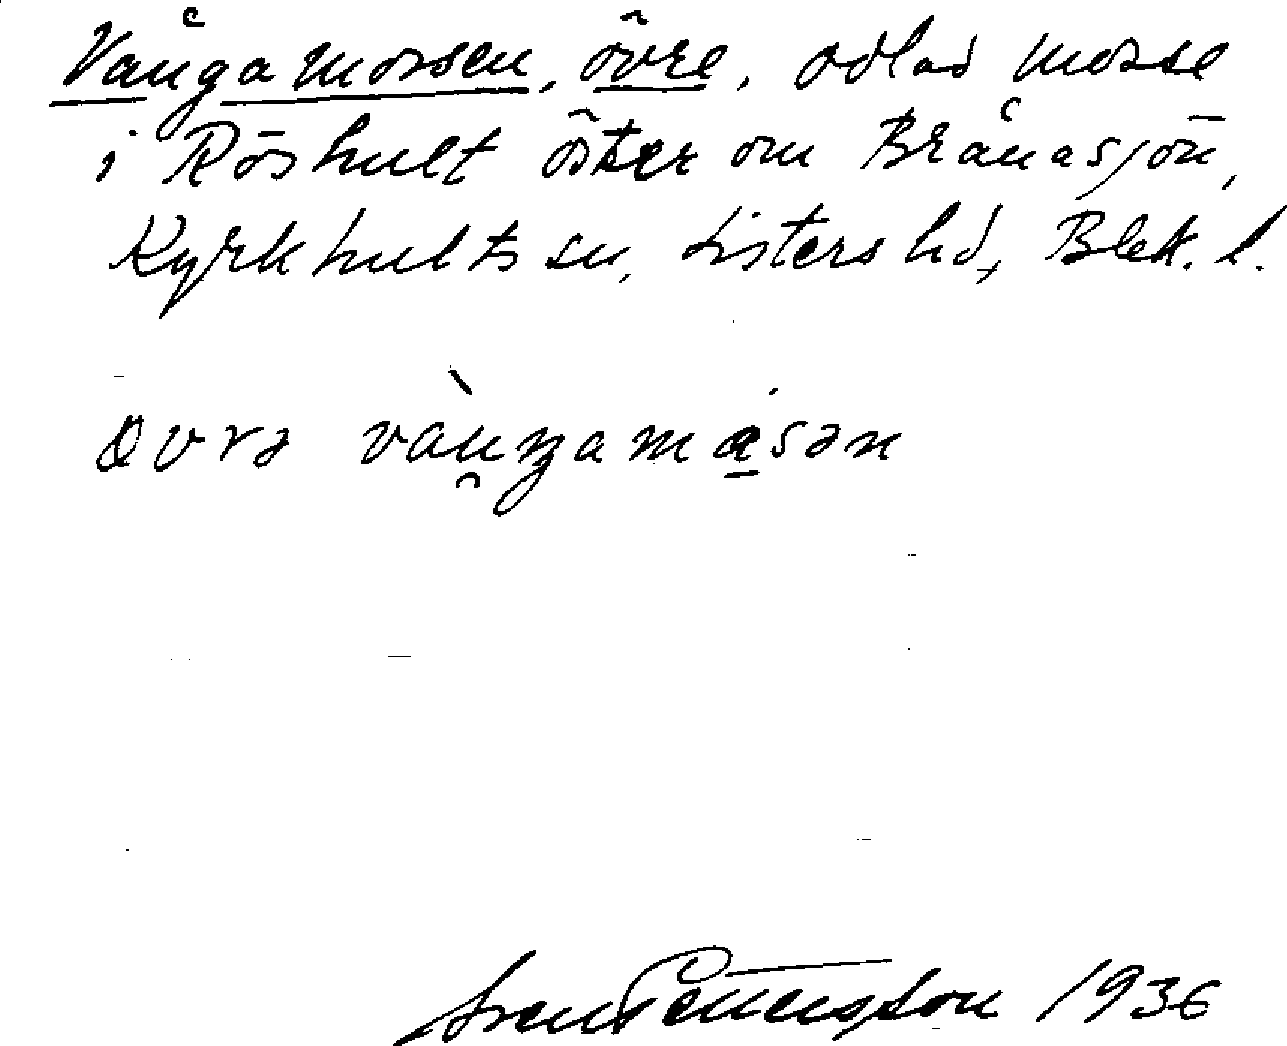 Vångamossen, övre, odlad mosse
i Röshult öster om Brånasjön,
Kyrkhults sn, Listers hd, Blek. l.
Sven Pettersson 1936